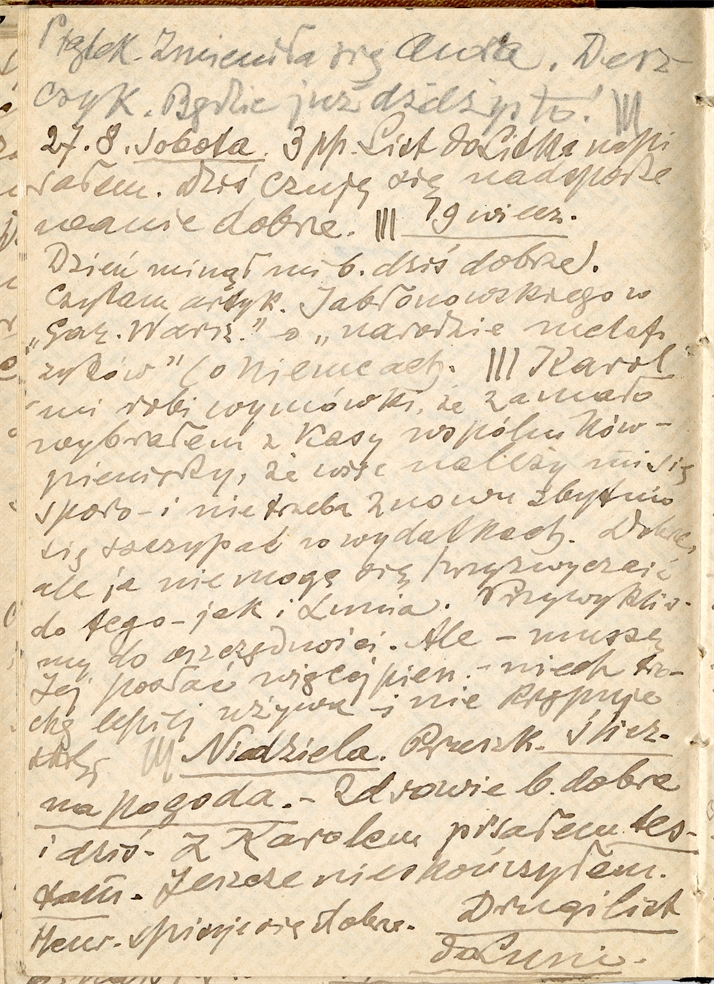 Piątek. Zmieniła się aura. Desz-
czyk. Będzie już dżdżysto! |||
27.8. Sobota. 3 pp. List do Litka napi
sałem. Dziś czuję się nadspodzie
wanie dobrze. ||| 19 wiecz.
Dzień minął mi b. dziś dobrze).
Czytam artyk. Jabłonowskiego w
„Gaz. Warsz." o „narodzie metafi
zyków" (o Niemcach. ||| Karol
mi robi wymówki, że zamało
wybrałem z Kasy wspólników-
pieniędzy, że więc należy mi się
sporo - i nie trzeba znowu zbytnio
się szczypać w wydatkach. Dobrze,
ale ja nie mogę się przyzwyczaić
do tego - jak i Lunia. Przywykliś-
my do oszczędności. Ale - muszę
Jej posłać więcej pien. - niech tro-
chę lepiej używa - i nie krępuje
||| Niedziela. Przeszk. Ślicz-
na pogoda. - Zdrowie b. dobre
i dziś. Z Karolem pisałem tes-
tam. Jeszcze nieskończyłem.
Henr. spisuje się dobrze. Drugi list
do Luni.